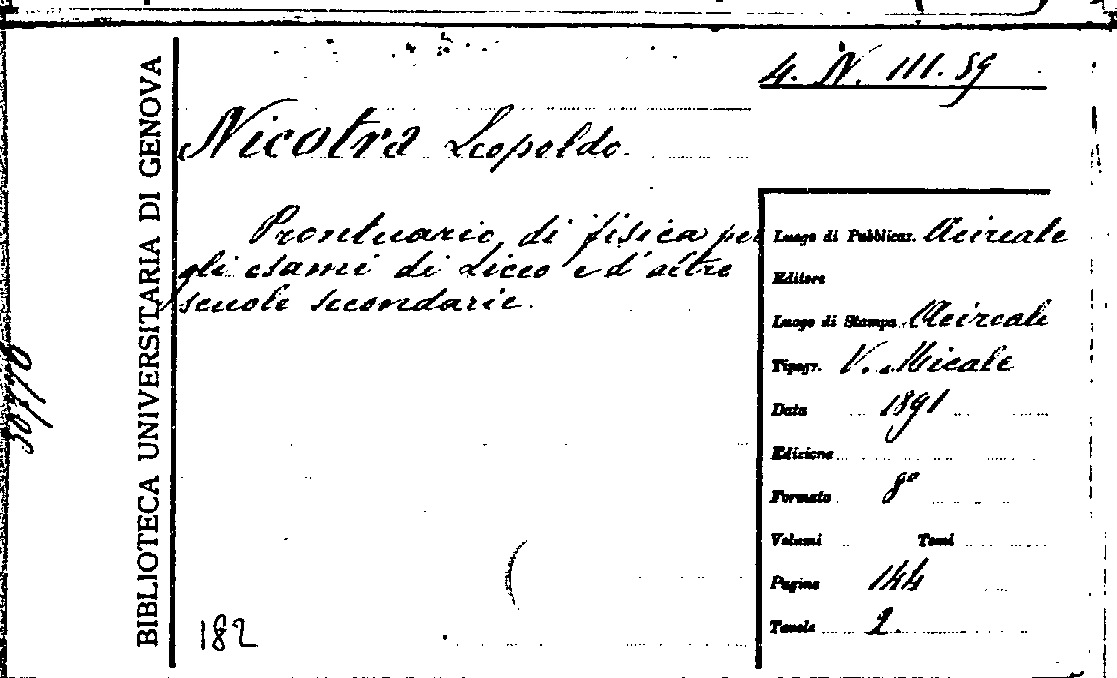 BIBLIOTECA UNIVERSITARIA DI GENOVA
4. N. 111. 59
Nicotra Leopoldo.
Prontuario di fisica per
gli esami di Liceo e d'altre
scuole secondarie.
182
Luogo di Pubblicaz. Acireale
Editore
Luogo di Stampa Acireale
Tipogr. V. Micale
Data 1891
Edizione
Formato 8º
Volumi Tomi
Pagine 144
Tavole 2.